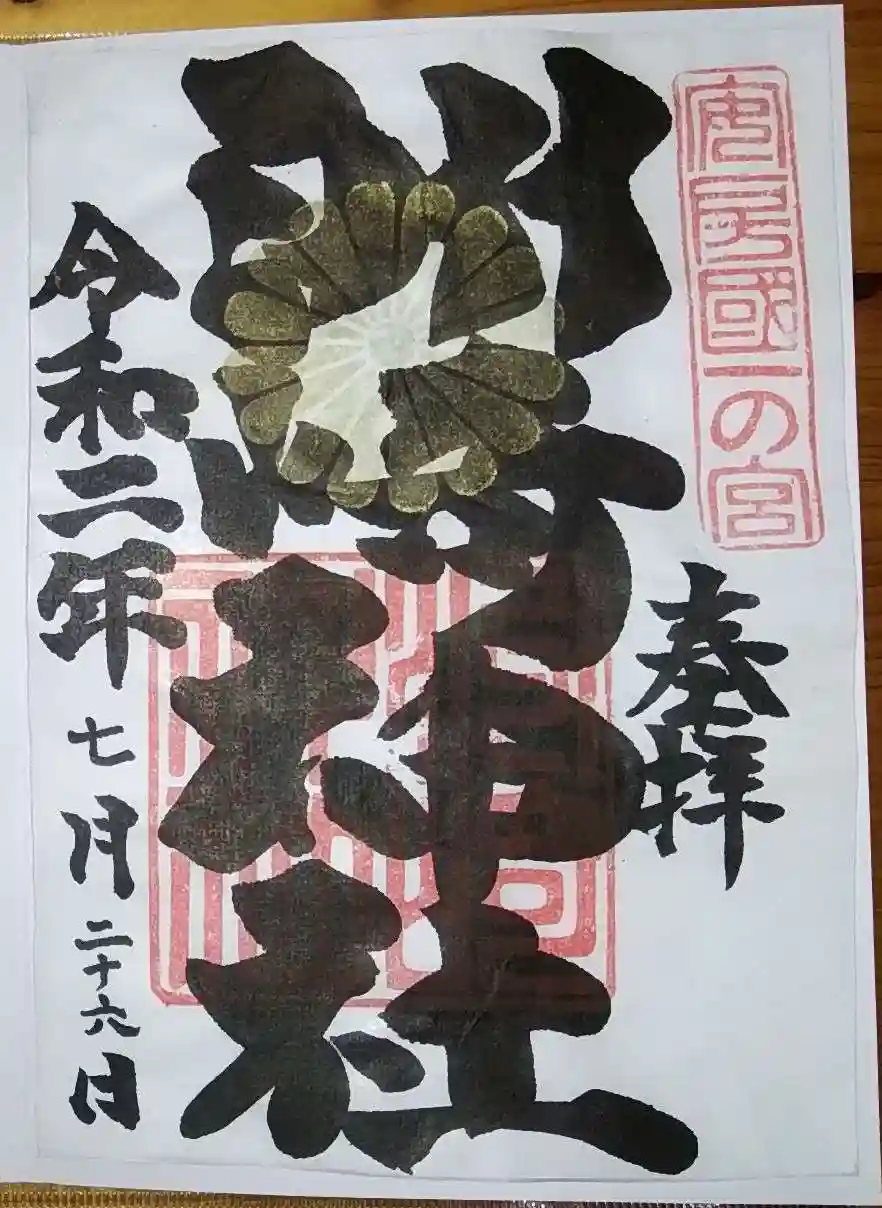 安房國一の宮
奉拝
洲崎神社
令和二年七月二十六日